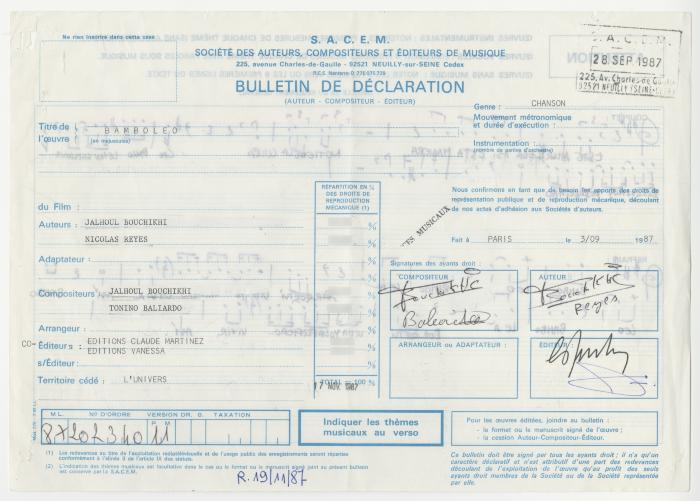 Ne rien inscrire dans cette case
S. A. C. E. M.
SOCIÉTÉ DES AUTEURS, COMPOSITEURS ET ÉDITEURS DE MUSIQUE
225, avenue Charles-de-Gaulle - 92521 NEUILLY-sur-SEINE Cedex
R.C.S. Nanterre D 775 675 739
S. A. C. E. M.
28 SEP 1987
225, Av. Charles de Gaulle
92521 NEUILLY S/SEINE
BULLETIN DE DÉCLARATION
(AUTEUR - COMPOSITEUR - ÉDITEUR)
Genre : CHANSON
Mouvement métronomique
et durée d'exécution :
Instrumentation :
(nombre de parties d'orchestre)
Titre de
l'œuvre
BAMBOLEO
(en majuscules)
RÉPARTITION EN %
DES DROITS DE
REPRODUCTION
MÉCANIQUE (1)
Nous confirmons en tant que de besoin les apports des droits de
représentation publique et de reproduction mécanique, découlant
de nos actes d'adhésion aux Sociétés d'auteurs.
Fait à PARIS le 3/09 1987
du Film :
Auteurs : JALHOUL BOUCHIKHI %
NICOLAS REYES %
Adaptateur : %
Compositeurs : JALHOUL BOUCHIKHI %
TONINO BALIARDO %
Arrangeur : %
CO-Éditeurs : EDITIONS CLAUDE MARTINEZ %
EDITIONS VANESSA
s/Éditeur : %
Territoire cédé : L'UNIVERS
TOTAL = 100 %
17 NOV. 1987
TS MUSICAUX
Signatures des ayants droit :
COMPOSITEUR
AUTEUR :
Reyes
ARRANGEUR ou ADAPTATEUR :
ÉDITEUR :
M L. N° D'ORDRE VERSION DR. B. TAXATION
P M
Indiquer les thèmes
musicaux au verso
Pour les œuvres éditées, joindre au bulletin :
- le format ou le manuscrit signé de l'œuvre ;
- la cession Auteur-Compositeur-Éditeur.
(1) Les redevances au titre de l'exploitation radiotélévisuelle et de l'usage public des enregistrements seront réparties
conformément à l'alinéa B de l'article IX des statuts.
(2) L'indication des thèmes musicaux est facultative dans le cas où le format ou le manuscrit signé joint au présent bulletin
est conservé par la S.A.C.E.M.
R. 19/11/87
Ce bulletin doit être signé par tous les ayants droit ; il n'a qu'un
caractère déclaratif et n'est attributif d'une part des redevances
découlant de l'exploitation de l'œuvre qu'au profit des seuls
ayants droit membres de la Société ou de la Société représentée
par elle.